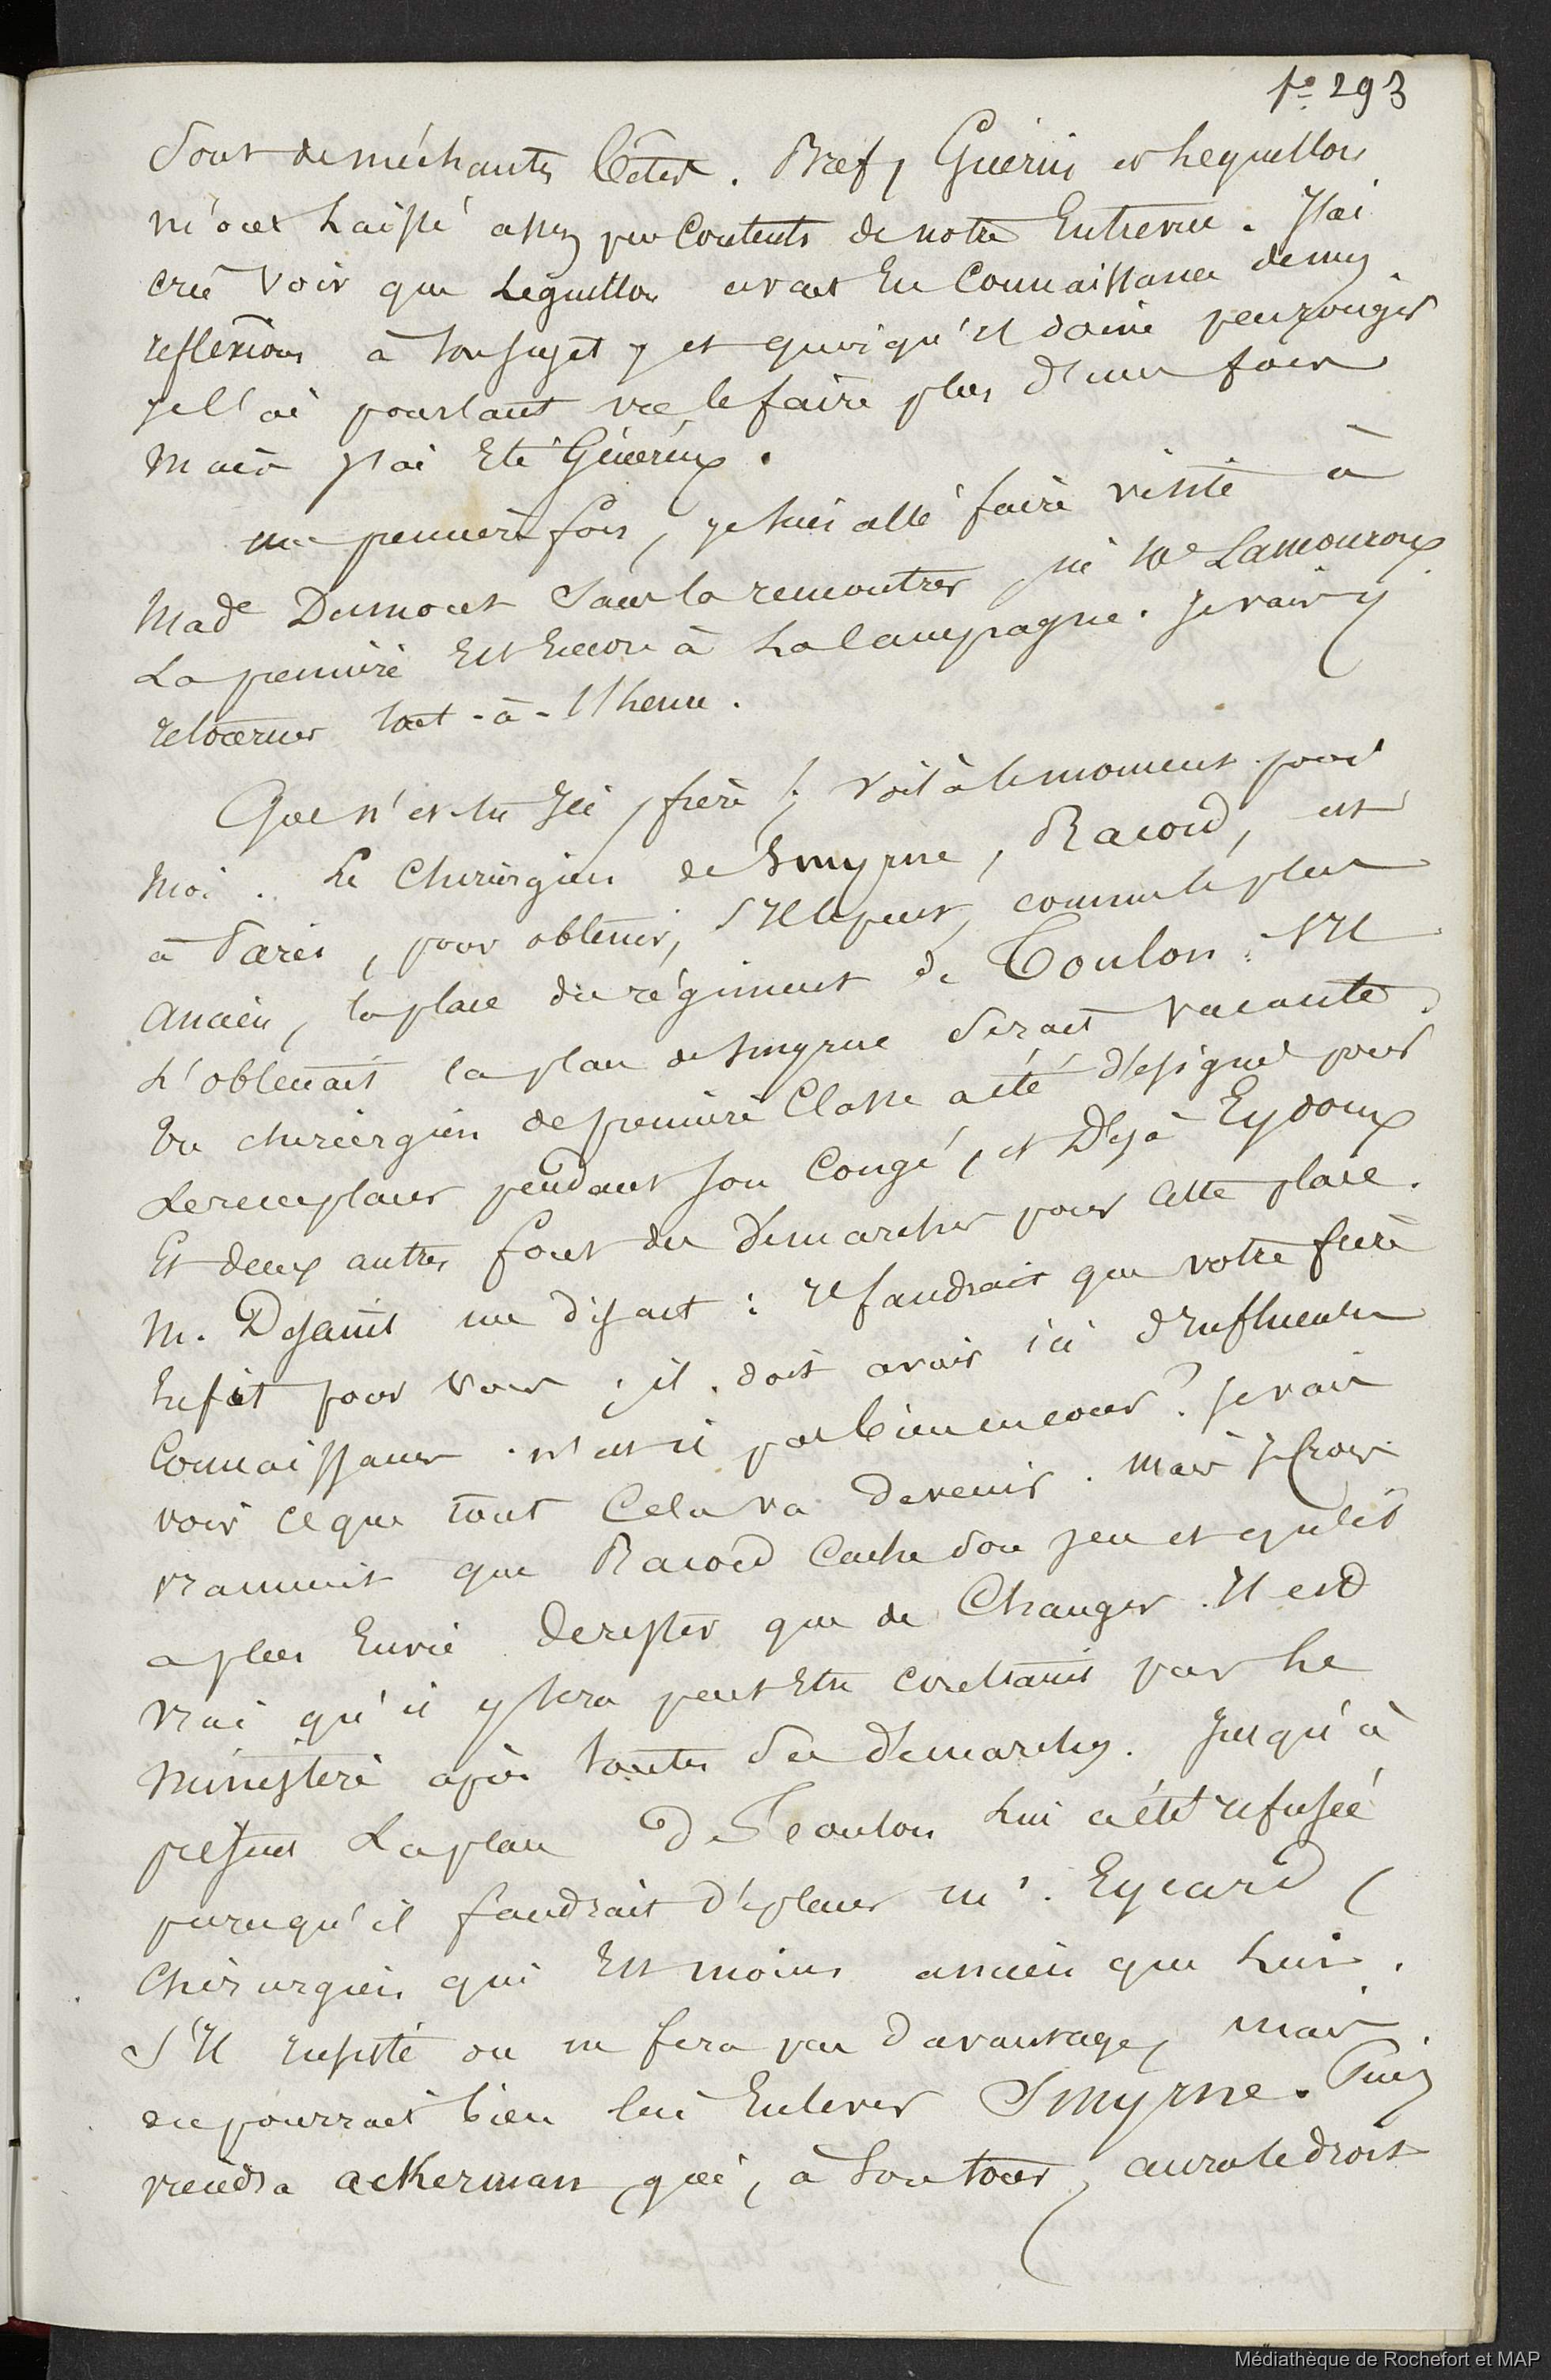 fo 293
Sont de méchantes bêtes. Bref, Guérin et Leguillou
m'ont Laissé assez peu Contents de notre Entrevue. J'ai
cru Voir que Leguillou avait Eu Connaissance de mes
reflexions à Son sujet, et quoiqu'Il doive peu rougir
je l'ai pourtant vu le faire plus d'une fois
Mais j'ai Eté Généreux.
une première fois, je Suis allé faire visite à
Made Dumont Sans la rencontrer ni Me Lamouroux
La première Est Encore à La Campagne. Je vais y
retourner tout-à-l'heure.
Que n'es-tu Ici, frère ! Voilà le moment pour
Moi. Le Chirurgien de Smyrne, Racord, est
à Paris, pour obtenir, s'Il le peut, comme le plus
ancien, la place du régiment de Toulon. S'Il
L'obtenait la place de Smyrne Serait Vacante.
Un chirurgien de première Classe a été désigné pour
Le remplacer pendant Son Congé, et Déjà Eydoux
Et deux autres font des démarches pour Cette place.
M. Dejamit me disait : Il faudrait que votre frère
fut pour vous, il doit avoir ici d'Influentes
Connaissances. n'est-il pas bien en cour ? Je vais
voir ce que tout Cela va devenir. Mais je Crois
vraiment que Racord Cache Son jeu et qu'il
a plus Envie de rester que de Changer. Il est
vrai qu'il y Sera peut Etre contraint par Le
Ministère après toutes Ses démarches. Jusqu'à
présent La place de Toulon Lui a été refusée
parcequ'il faudrait déplacer Mr. Eycard
Chirurgien qui Est moins ancien que Lui.
S'Il Insiste on ne fera pas davantage, mais
on pourrait bien lui Enlever Smyrne. Puis
viendra ackerman qui, à Son tour, aura le droit
Médiathèque de Rochefort et MAP